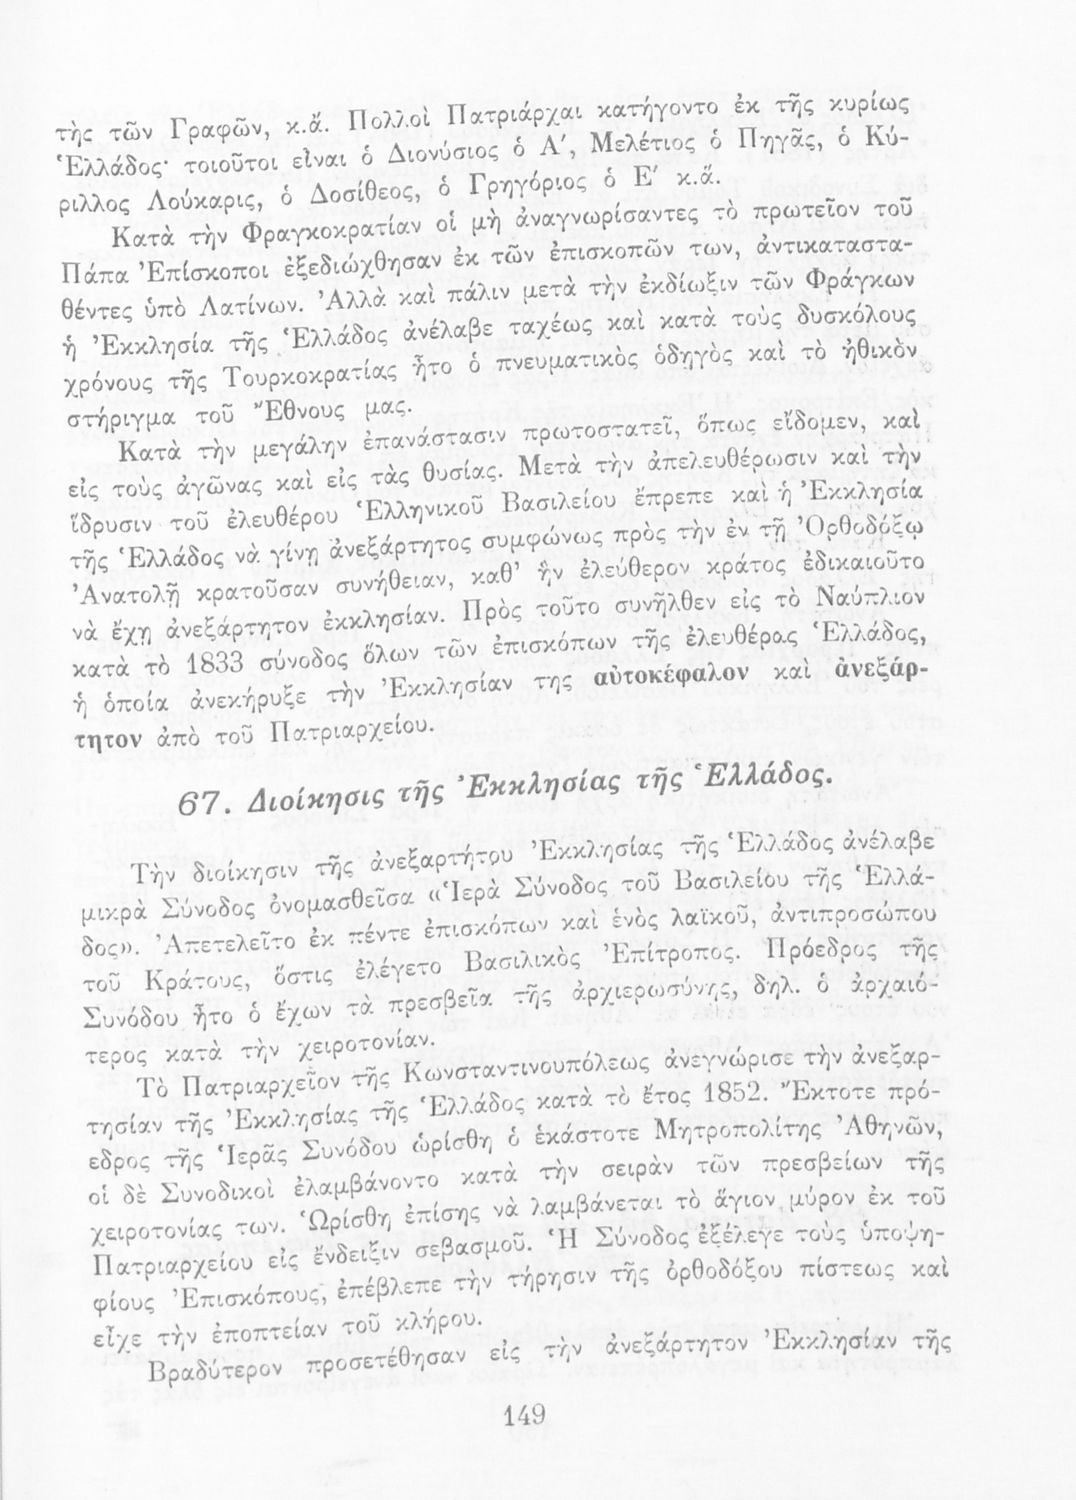 τὴς τῶν Γραφῶν, κ.ἄ. Πολλοὶ Πατριάρχαι κατήγοντο ἐκ τῆς κυρίως
Ἑλλάδος· τοιοῦτοι εἶναι ὁ Διονύσιος ὁ Α′, Μελέτιος ὁ Πηγᾶς, ὁ Κύ-
ριλλος Λούκαρις, ὁ Δοσίθεος, ὁ Γρηγόριος ὁ Ε′ κ.ἄ.
Κατὰ τὴν Φραγκοκρατίαν οἱ μὴ ἀναγνωρίσαντες τὸ πρωτεῖον τοῦ
Πάπα Ἐπίσκοποι ἐξεδιώχθησαν ἐκ τῶν ἐπισκοπῶν των, ἀντικαταστα-
θέντες ὑπὸ Λατίνων. Ἀλλὰ καὶ πάλιν μετὰ τὴν ἐκδίωξιν τῶν Φράγκων
ἡ Ἐκκλησία τῆς Ἑλλάδος ἀνέλαβε ταχέως καὶ κατὰ τοὺς δυσκόλους
χρόνους τῆς Τουρκοκρατίας ἦτο ὁ πνευματικὸς ὁδηγὸς καὶ τὸ ἠθικὸν
στήριγμα τοῦ Ἔθνους μας.
Κατὰ τὴν μεγάλην ἐπανάστασιν πρωτοστατεῖ, ὅπως εἴδομεν, καὶ
εἰς τοὺς ἀγῶνας καὶ εἰς τὰς θυσίας. Μετὰ τὴν ἀπελευθέρωσιν καὶ τὴν
ἵδρυσιν τοῦ ἐλευθέρου Ἑλληνικοῦ Βασιλείου ἔπρεπε καὶ ἡ Ἐκκλησία
τῆς Ἑλλάδος νὰ γίνῃ ἀνεξάρτητος συμφώνως πρὸς τὴν ἐν τῇ Ὀρθοδόξῳ
Ἀνατολῇ κρατοῦσαν συνήθειαν, καθ' ἣν ἐλεύθερον κράτος ἐδικαιοῦτο
νὰ ἔχῃ ἀνεξάρτητον ἐκκλησίαν. Πρὸς τοῦτο συνῆλθεν εἰς τὸ Ναύπλιον
κατὰ τὸ 1833 σύνοδος ὅλων τῶν ἐπισκόπων τῆς ἐλευθέρας Ἑλλάδος,
ἡ ὁποία ἀνεκήρυξε τὴν Ἐκκλησίαν της αὐτοκέφαλον καὶ ἀνεξάρ-
τητον ἀπὸ τοῦ Πατριαρχείου.
67. Διοίκησις τῆς Ἐκκλησίας τῆς Ἑλλάδος.
Τὴν διοίκησιν τῆς ἀνεξαρτήτου Ἐκκλησίας τῆς Ἑλλάδος ἀνέλαβε
μικρὰ Σύνοδος ὀνομασθεῖσα «Ἱερὰ Σύνοδος τοῦ Βασιλείου τῆς Ἑλλά-
δος». Ἀπετελεῖτο ἐκ πέντε ἐπισκόπων καὶ ἑνὸς λαϊκοῦ, ἀντιπροσώπου
τοῦ Κράτους, ὅστις ἐλέγετο Βασιλικὸς Ἐπίτροπος. Πρόεδρος τῆς
Συνόδου ἦτο ὁ ἔχων τὰ πρεσβεῖα τῆς ἀρχιερωσύνης, δηλ. ὁ ἀρχαιό-
τερος κατὰ τὴν χειροτονίαν.
Τὸ Πατριαρχεῖον τῆς Κωνσταντινουπόλεως ἀνεγνώρισε τὴν ἀνεξαρ-
τησίαν τῆς Ἐκκλησίας τῆς Ἑλλάδος κατὰ τὸ ἔτος 1852. Ἔκτοτε πρό-
εδρος τῆς Ἱερᾶς Συνόδου ὡρίσθη ὁ ἑκάστοτε Μητροπολίτης Ἀθηνῶν,
οἱ δὲ Συνοδικοὶ ἐλαμβάνοντο κατὰ τὴν σειρὰν τῶν πρεσβείων τῆς
χειροτονίας των. Ὡρίσθη ἐπίσης νὰ λαμβάνεται τὸ ἅγιον μύρον ἐκ τοῦ
Πατριαρχείου εἰς ἔνδειξιν σεβασμοῦ. Ἡ Σύνοδος ἐξέλεγε τοὺς ὑποψη-
φίους Ἐπισκόπους, ἐπέβλεπε τὴν τήρησιν τῆς ὀρθοδόξου πίστεως καὶ
εἶχε τὴν ἐποπτείαν τοῦ κλήρου.
Βραδύτερον προσετέθησαν εἰς τὴν ἀνεξάρτητον Ἐκκλησίαν τῆς
149